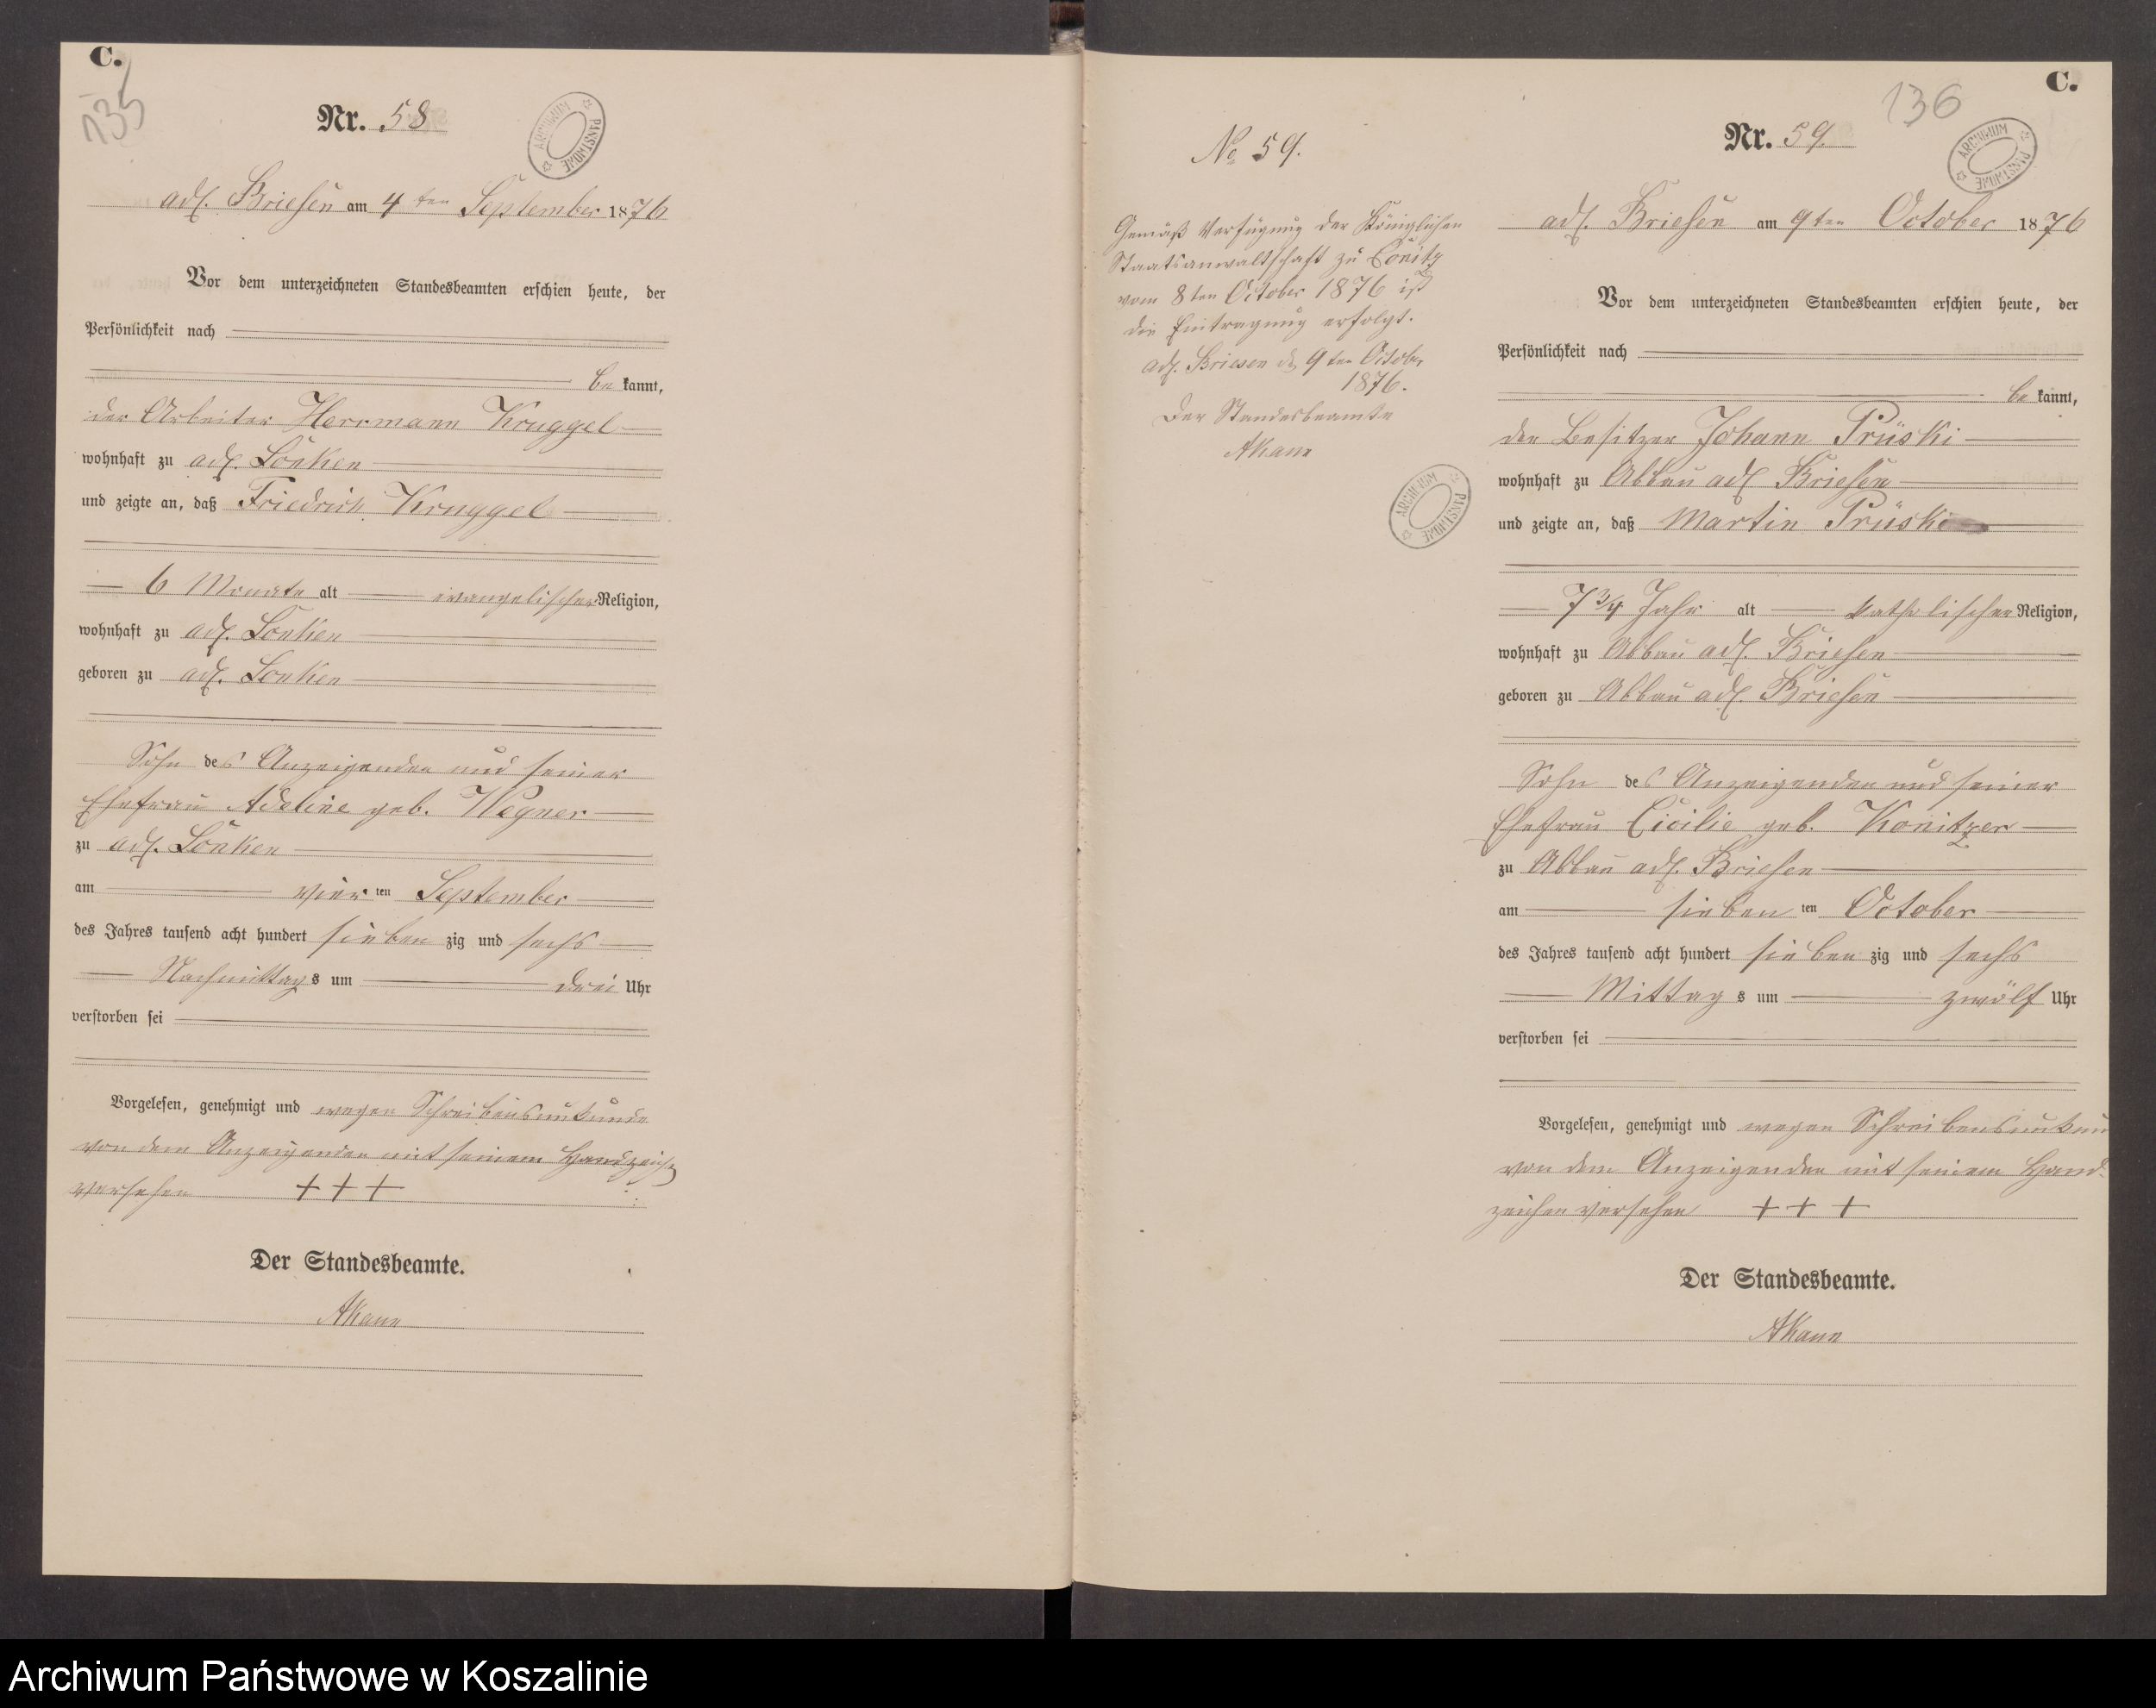 C.
135
Nr. 58
ARCHIWUM PAŃSTWOWE
adl. Briesen am 4ten September 1876
Vor dem unterzeichneten Standesbeamten erschien heute, der
Persönlichkeit nach
be kannt,
der Arbeiter Herrmann Kruggel
wohnhaft zu adl. Lonken
und zeigte an, daß Friedrich Kruggel
6 Monate alt evangelischer Religion,
wohnhaft zu adl. Lonken
geboren zu adl. Lonken
Sohn des Anzeigenden und seiner
Ehefrau Adeline geb. Wegner
zu adl. Lonken
am vier ten September
des Jahres tausend acht hundert sieben zig und sechs
Nachmittags um drei Uhr
verstorben sei
Vorgelesen, genehmigt und wegen Schreibensunkunde
von dem Anzeigenden mit seinem Handzeich
versehen +++
Der Standesbeamte.
AKann
No 59.
Gemäß Verfügung der Königlichen
Staatsanwaltschaft zu Conitz
vom 8ten October 1876 ist
die Eintragung erfolgt.
adl. Briesen d 9ten October
1876.
Der Standesbeamte
AKann
ARCHIWUM PAŃSTWOWE
C.
136
Nr. 59.
ARCHIWUM PAŃSTWOWE
adl. Briesen am 9ten October 1876
Vor dem unterzeichneten Standesbeamten erschien heute, der
Persönlichkeit nach
be kannt,
der Besitzer Johann Prüski
wohnhaft zu Abbau adl Briesen
und zeigte an, daß Martin Prüski
7 3/4 Jahr alt katholischer Religion,
wohnhaft zu Abbau adl. Briesen
geboren zu Abbau adl. Briesen
Sohn des Anzeigenden und seiner
Ehefrau Cicilie geb. Konitzer
zu Abbau adl. Briesen
am sieben ten October
des Jahres tausend acht hundert sieben zig und sechs
Mittags um zwölf Uhr
verstorben sei
Vorgelesen, genehmigt und wegen Schreibensunkun
von dem Anzeigenden mit seinem Hand-
zeichen versehen +++
Der Standesbeamte.
AKann
Archiwum Państwowe w Koszalinie